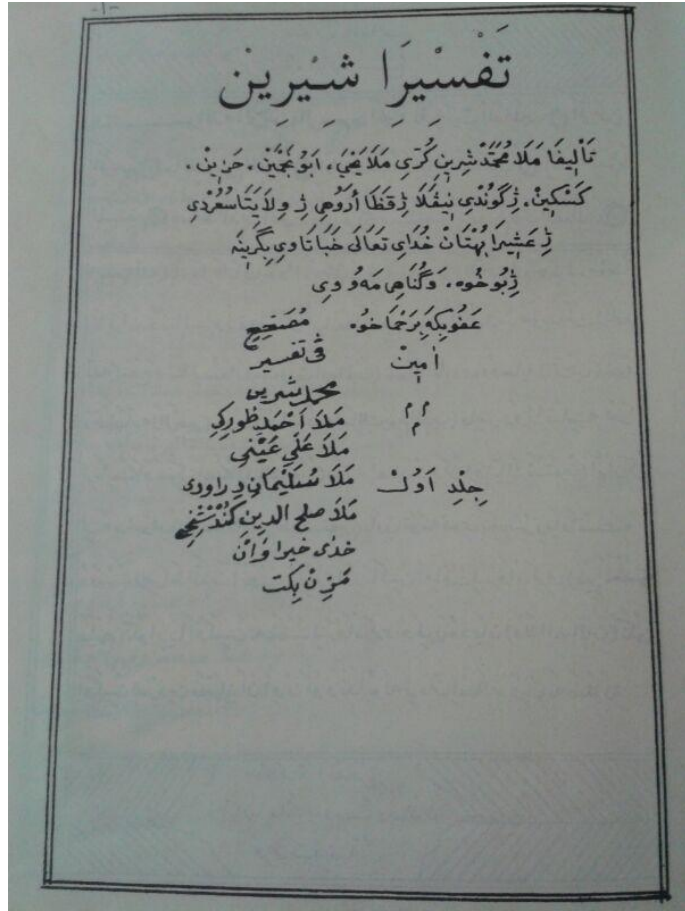 -١-
تَفْسِيرَا شِيرِينْ
تَأْلِيفَا مَلَا مُحَمَّدْ شِرِينِ كُرِّي مَلَا يَحْيَ، اَبُو نَجْمَيْنْ. حَزِينْ.
كَسْكِينْ. ژِگُونْدِي نِيڤِلَا ژِ قَظَا أَرُوهِي ژِ وِلَايَتَا سُعُرْدِي
ژِ عَشِيرَا بُهْتَانْ خُدَايِ تَعَالَى خَبَاتَا وِي بِگِرِينَه
ژِبُو خُوه. وَگُنَاهِي مَه وُ وِي
عَفُو بِكَه بِرَحْمَا خُوه
اٰمِينْ
م م
م
جِلْدِ اَوَّلْ
مُصَحِّحِ
ڤى تفسير
محمد شرين
مَلاَ اَحْمَدِ ظوركي
مَلاَ عَلِي عَيْنِي
مَلاَ سُلَيْمَانِ دراودى
مَلاَ صلح الدين
خدى خيرا وان
مَزِنْ بِكت